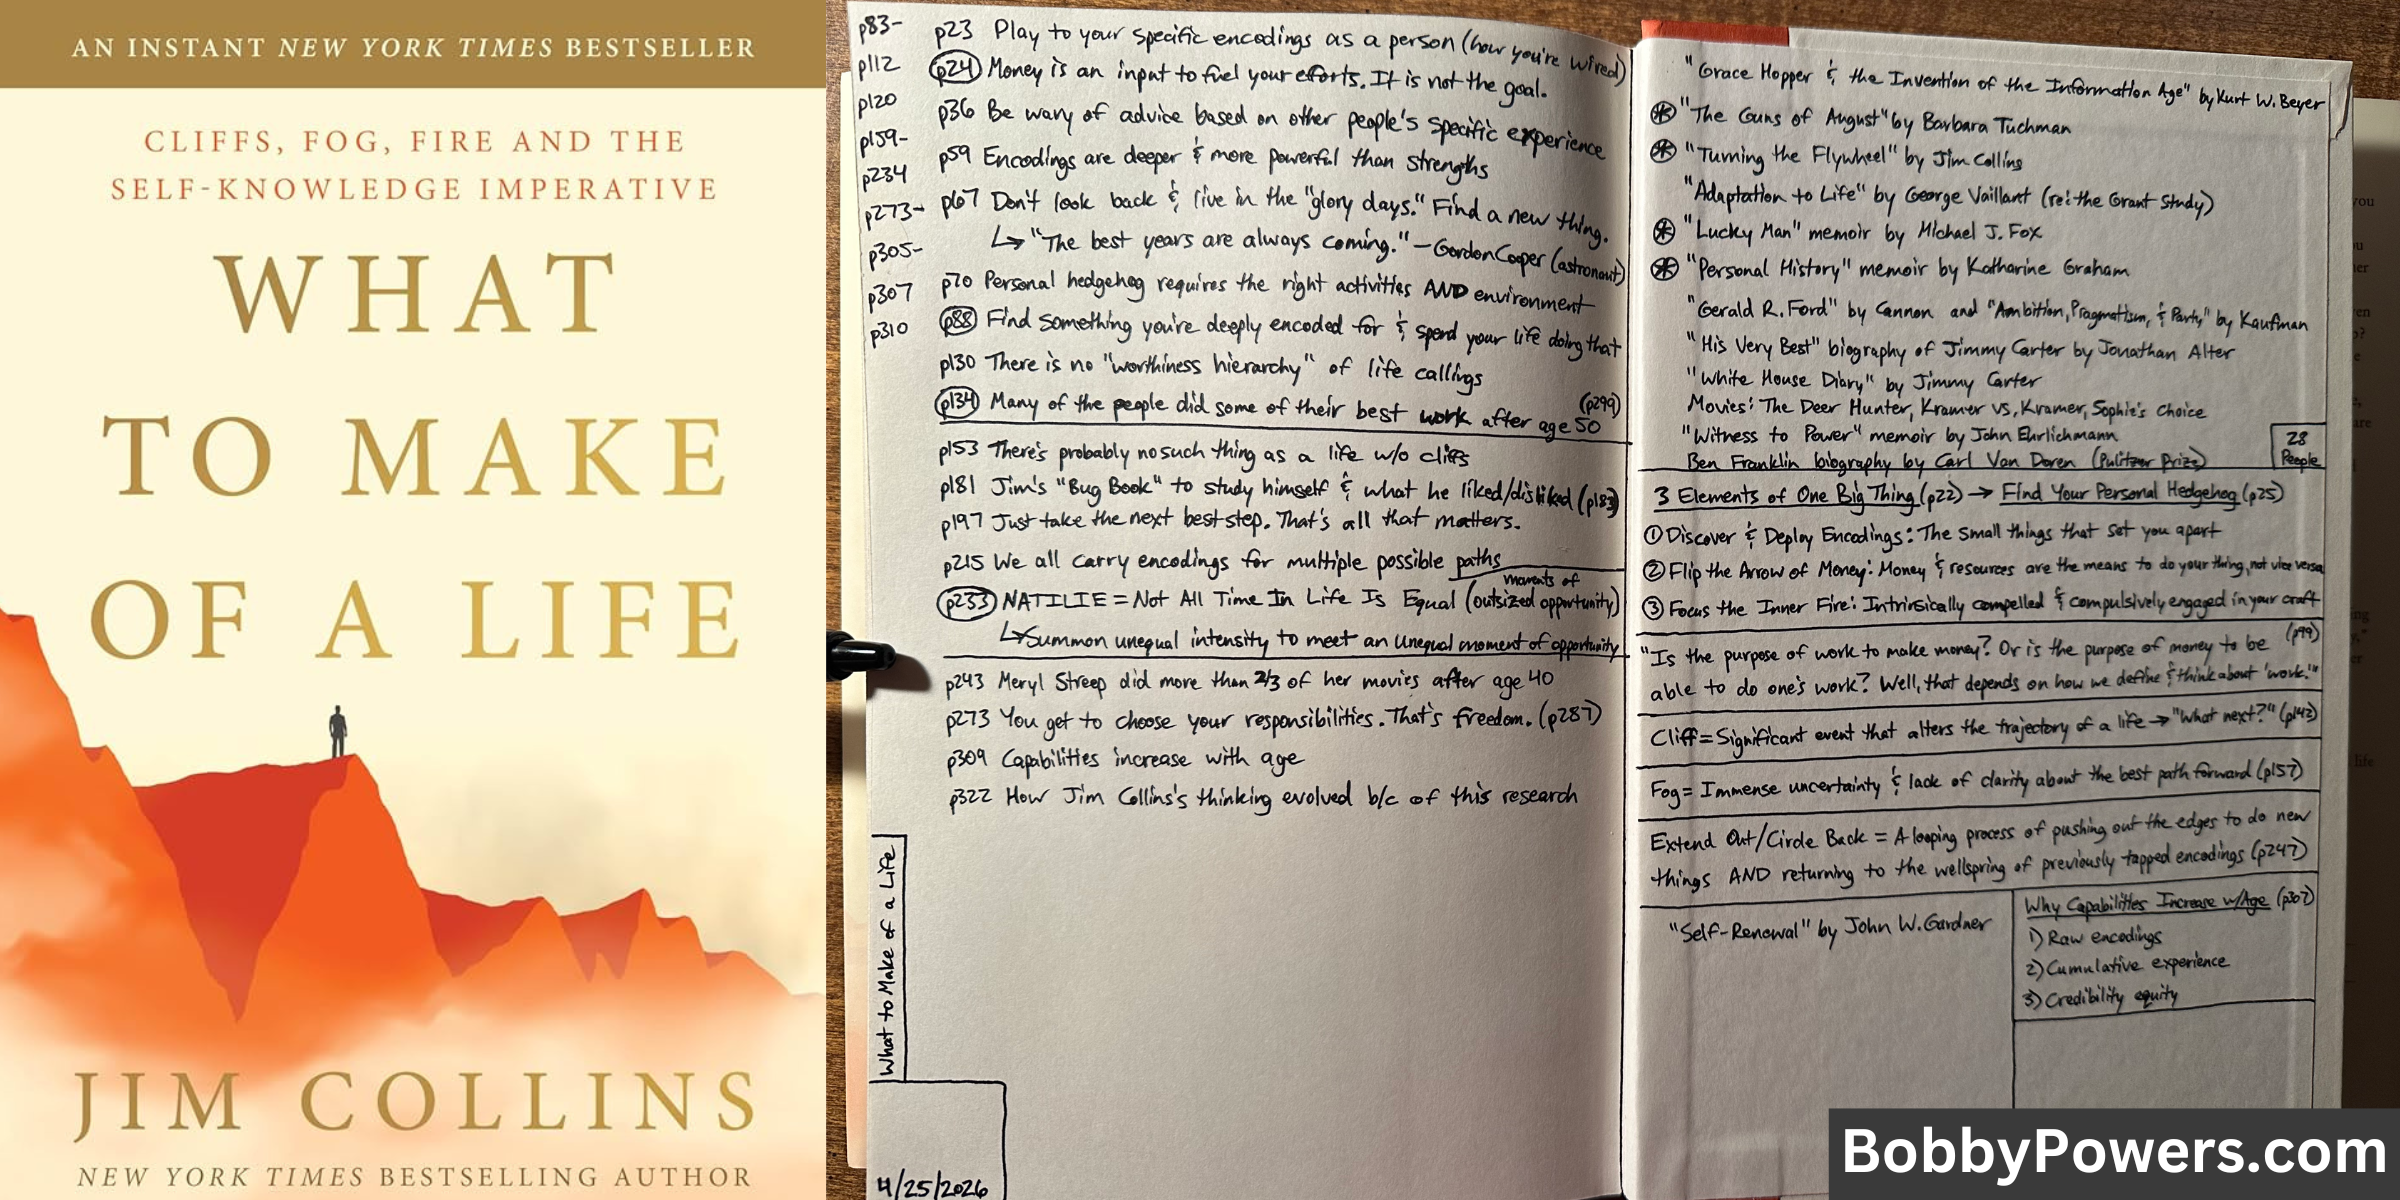 AN INSTANT NEW YORK TIMES BESTSELLER
CLIFFS, FOG, FIRE AND THE
SELF-KNOWLEDGE IMPERATIVE
WHAT
TO MAKE
OF A LIFE
JIM COLLINS
NEW YORK TIMES BESTSELLING AUTHOR
p83-
p112
p120
p159-
p234
p273-
p305-
p307
p310
p23 Play to your specific encodings as a person (how you're wired)
p24 Money is an input to fuel your efforts. It is not the goal.
p36 Be wary of advice based on other people's specific experience
p59 Encodings are deeper & more powerful than strengths
p67 Don't look back & live in the "glory days." Find a new thing.
↳ "The best years are always coming." - Gordon Cooper (astronaut)
p70 Personal hedgehog requires the right activities AND environment
p88 Find something you're deeply encoded for & spend your life doing that
p130 There is no "worthiness hierarchy" of life callings
p134 Many of the people did some of their best work after age 50 (p299)
p153 There's probably no such thing as a life w/o cliffs
p181 Jim's "Bug Book" to study himself & what he liked/disliked (p183)
p197 Just take the next best step. That's all that matters.
p215 We all carry encodings for multiple possible paths
p233 NATILIE = Not All Time In Life Is Equal (moments of outsized opportunity)
↳ Summon unequal intensity to meet an unequal moment of opportunity
p243 Meryl Streep did more than 2/3 of her movies after age 40
p273 You get to choose your responsibilities. That's freedom. (p287)
p309 Capabilities increase with age
p322 How Jim Collins's thinking evolved b/c of this research
What to Make of a Life
4/25/2026
"Grace Hopper & the Invention of the Information Age" by Kurt W. Beyer
"The Guns of August" by Barbara Tuchman
"Turning the Flywheel" by Jim Collins
"Adaptation to Life" by George Vaillant (re: the Grant Study)
"Lucky Man" memoir by Michael J. Fox
"Personal History" memoir by Katharine Graham
"Gerald R. Ford" by Cannon and "Ambition, Pragmatism, & Party" by Kaufman
"His Very Best" biography of Jimmy Carter by Jonathan Alter
"White House Diary" by Jimmy Carter
Movies: The Deer Hunter, Kramer vs. Kramer, Sophie's Choice
"Witness to Power" memoir by John Ehrlichmann
Ben Franklin biography by Carl Van Doren (Pulitzer Prize)
28
People
3 Elements of One Big Thing (p22) → Find Your Personal Hedgehog (p25)
① Discover & Deploy Encodings: The small things that set you apart
② Flip the Arrow of Money: Money & resources are the means to do your thing, not vice versa
③ Focus the Inner Fire: Intrinsically compelled & compulsively engaged in your craft
"Is the purpose of work to make money? Or is the purpose of money to be (p99)
able to do one's work? Well, that depends on how we define & think about 'work.'"
Cliff = Significant event that alters the trajectory of a life → "What next?" (p142)
Fog = Immense uncertainty & lack of clarity about the best path forward (p157)
Extend Out/Circle Back = A looping process of pushing out the edges to do new
things AND returning to the wellspring of previously tapped encodings (p247)
"Self-Renewal" by John W. Gardner
Why Capabilities Increase w/Age (p307)
1) Raw encodings
2) Cumulative experience
3) Credibility equity
BobbyPowers.com